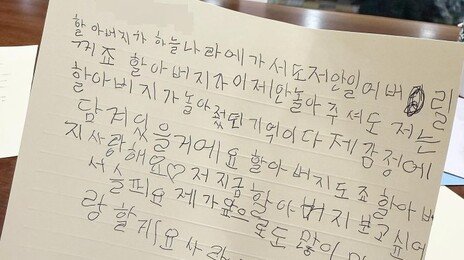 할아버지가하늘나라에가서도저안잃어버릴
꺼죠 할아버지가이제안놀아주셔도 저는
할아버지가놀아줬던기억이다제감정에
담겨있을거에요할아버지도죠할아버
지사랑해요♡저지금할아버지보고싶어
서슬퍼요제가앞으로도많이
랑할게요사랑